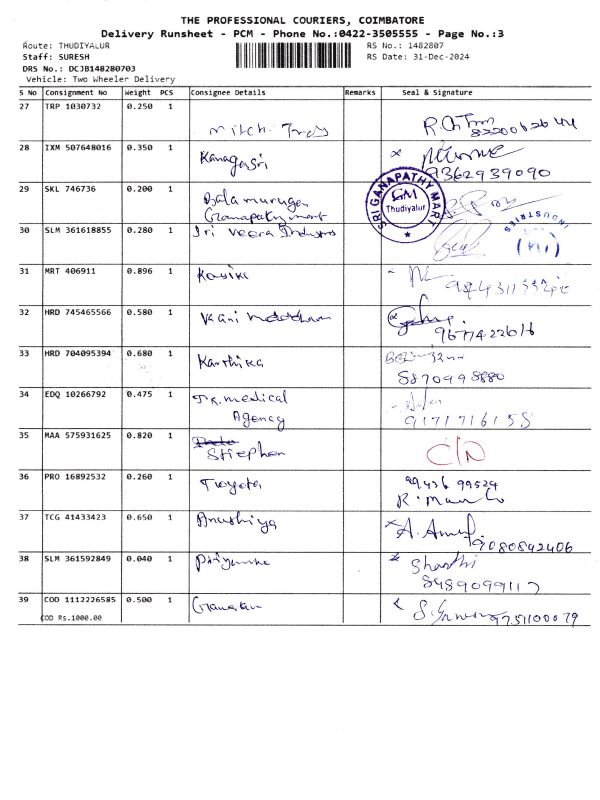 THE PROFESSIONAL COURIERS, COIMBATORE
Delivery Runsheet - PCM - Phone No.:0422-3505555 - Page No.:3
Route: THUDIYALUR RS No.: 1482807
Staff: SURESH RS Date: 31-Dec-2024
DRS No.: DCJB148280703
Vehicle: Two Wheeler Delivery
S No Consignment No Weight PCS Consignee Details Remarks Seal & Signature
27 TRP 1030732 0.250 1
28 IXM 507648016 0.350 1 Kanagasri
9362939090
29 SKL 746736 0.200 1 Balamurugan
Ganapathy mart
SRI GANAPATHY MART
GM
Thudiyalur
30 SLM 361618855 0.280 1 Sri Veera Industries
INDUSTRIES
31 MRT 406911 0.896 1
32 HRD 745465566 0.580 1 Vani
9677422616
33 HRD 704095394 0.680 1 Karthika
5870998880
34 EDQ 10266792 0.475 1 medical
Agency
9171716155
35 MAA 575931625 0.820 1
Stiephen
36 PRO 16892532 0.260 1 Toyota
99436 99524
37 TCG 41433423 0.650 1 Anushiya
9080842406
38 SLM 361592849 0.040 1 Sharthi
8489099117
39 COD 1112226585 0.500 1
COD Rs.1000.00 9751100079